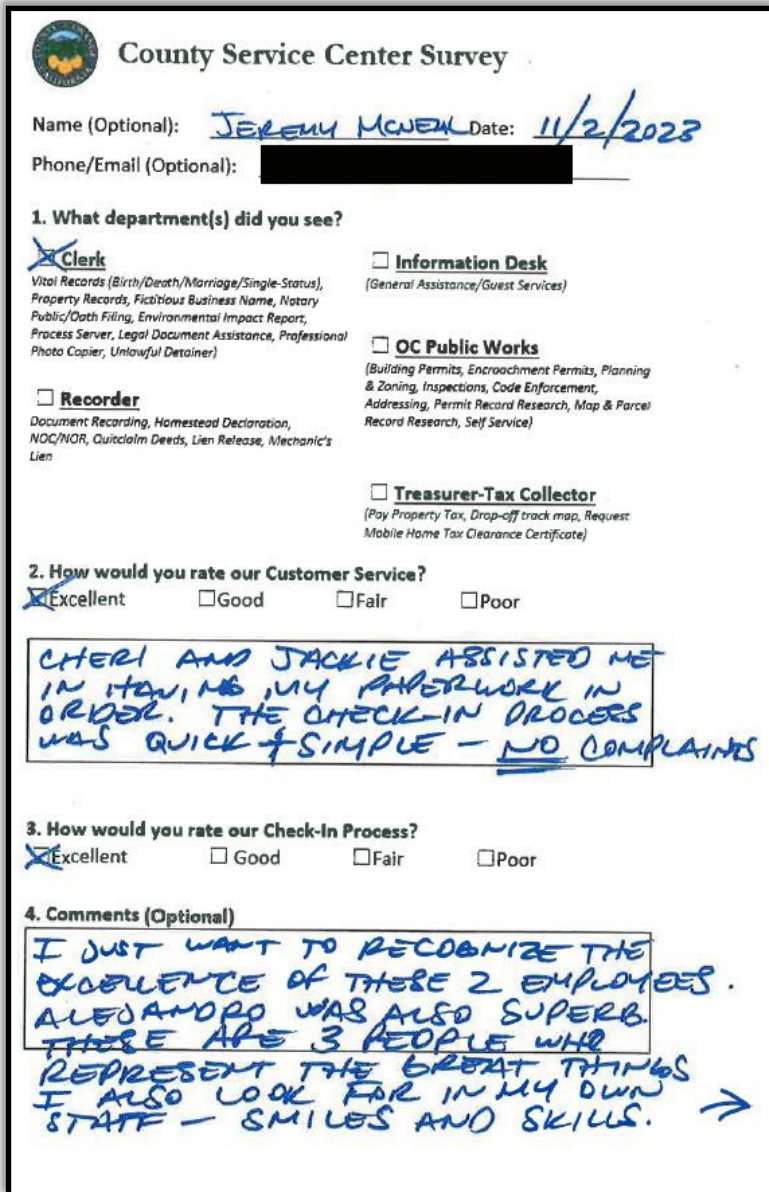 County Service Center Survey
Name (Optional): JEREMY MCNEAL Date: 11/2/2023
Phone/Email (Optional):
1. What department(s) did you see?
Clerk
Vital Records (Birth/Death/Marriage/Single-Status),
Property Records, Fictitious Business Name, Notary
Public/Oath Filing, Environmental Impact Report,
Process Server, Legal Document Assistance, Professional
Photo Copier, Unlawful Detainer)
Recorder
Document Recording, Homestead Declaration,
NOC/NOR, Quitclaim Deeds, Lien Release, Mechanic's
Lien
Information Desk
(General Assistance/Guest Services)
OC Public Works
(Building Permits, Encroachment Permits, Planning
& Zoning, Inspections, Code Enforcement,
Addressing, Permit Record Research, Map & Parcel
Record Research, Self Service)
Treasurer-Tax Collector
(Pay Property Tax, Drop-off track map, Request
Mobile Home Tax Clearance Certificate)
2. How would you rate our Customer Service?
Excellent Good Fair Poor
CHERI AND JACKIE ASSISTED ME
IN HAVING MY PAPERWORK IN
ORDER. THE CHECK-IN PROCESS
WAS QUICK & SIMPLE - NO COMPLAINTS
3. How would you rate our Check-In Process?
Excellent Good Fair Poor
4. Comments (Optional)
I JUST WANT TO RECOGNIZE THE
EXCELLENCE OF THESE 2 EMPLOYEES.
ALEJANDRO WAS ALSO SUPERB.
THESE ARE 3 PEOPLE WHO
REPRESENT THE GREAT THINGS
I ALSO LOOK FOR IN MY OWN
STAFF - SMILES AND SKILLS. →